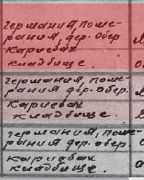 Германия, Поме-
рания, дер. Обер
Карнсвах
кладбище.
Германия, Поме-
рания дер. обер.
Карнсвах
кладбище.
Германия, Поме-
рания дер. обер
карнсвах
кладбище.